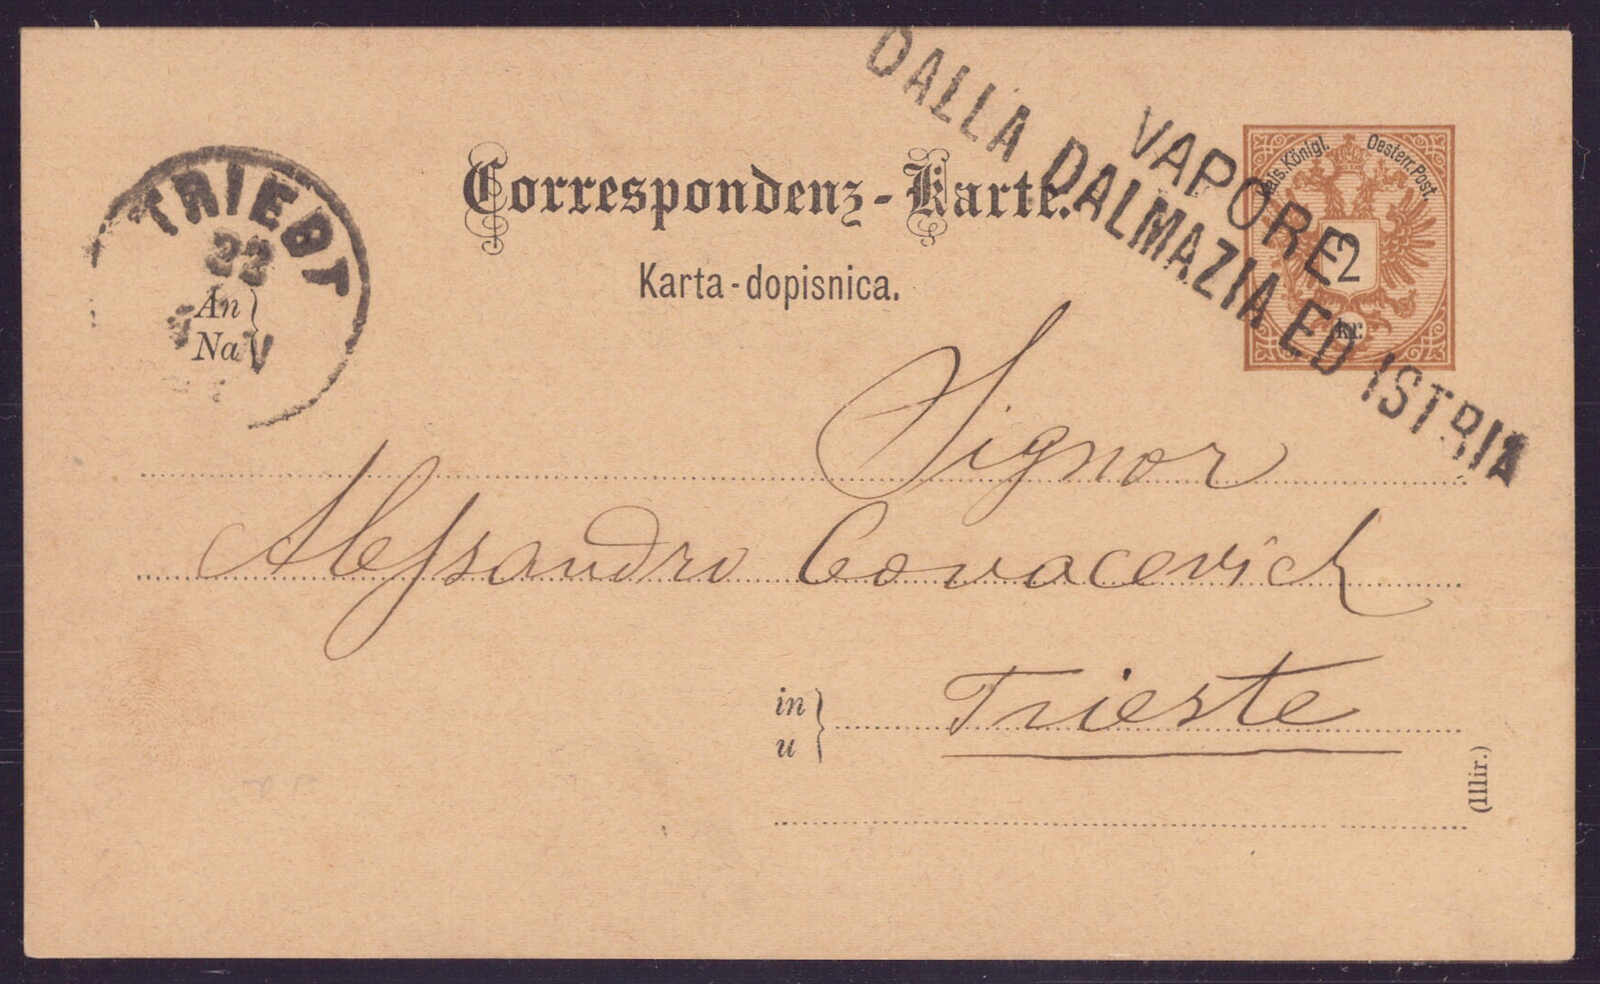 VAPORE
DALLA DALMAZIA ED ISTRIA
Kais. Königl. Oesterr. Post.
2
kr.
Correspondenz-Karte.
Karta-dopisnica.
TRIEST
22
V
An
Na
Signor
Alessandro Covacevich
in
u
Trieste
(Illir.)